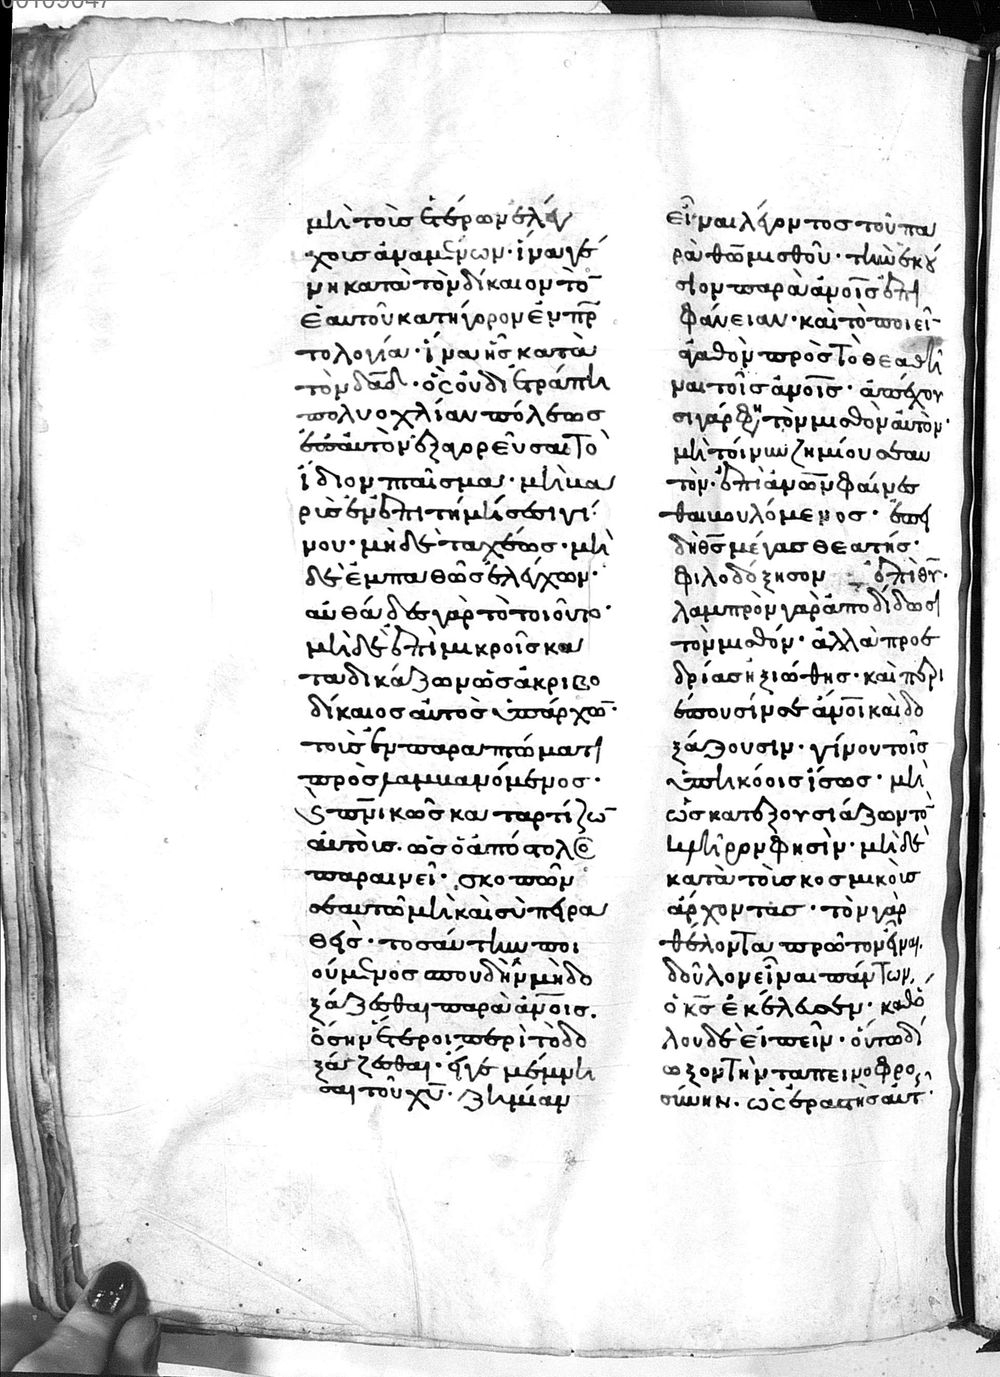 μὴ τοῖς ἑτέρων ἐλέγ
χοις ἀναμένων· ἵνα γέ
νη κατὰ τὸν δίκαιον τὸ̄
ἑαυτοῦ κατήγορον ἐν πρ̄
τολογία· ἵνα ἧς κατὰ
τὸν δᾱδ· ὃς οὐ διετράπη
πολυοχλίαν πόλεως
ἐπ αὐτὸν ἐξαγορεῦσαι τὸ
ἴδιον πταῖσμα· μὴ βα
ρὺς ἐν ἐπιτημήσεσι γί
νου· μηδὲ ταχέως· μη
δὲ ἐμπαθῶς ἐλέγχων·
αὐθάδες γὰρ τὸ τοιοῦτο·
μηδὲ ἐπὶ μικροῖς κα
ταδικάζων ὡς ἀκριβο
δίκαιος αὐτὸς ὑπάρχω̄·
τοὺς ἐν παραπτώμασι
προσλαμβανόμενος·
καὶ πν̄ικῶς καταρτίζω̄
αὐτοὺς· ὡς ὁ ἀπόστολος
παραινεῖ· σκοπῶν
σεαυτῶ μὴ καὶ σὺ πειρα
θῆς· τοσαύτην ποι
ούμενος σπουδὴν μὴ δο
ξάζεσθαι παρὰ ἀν̄οις·
ὅσην ἕτεροι περὶ τὸ δο
ξάζεσθαι· εἴγε μέμνη
σαι τοῦ χῡ· ζημίαν
εἶναι λέγοντος τοῦ πα
ρὰ θῶ μισθοῦ· τὴν ἑκού
σιον παρὰ ἀν̄οις ἐπι
φάνειαν· καὶ τὸ ποιεῖ̄
ἀγαθὸν πρὸς τὸ θεαθῆ
ναι τοῖς ἀν̄οις· ἀπέχου
σι γὰρ φη τὸν μισθὸν αὐτῶν·
μὴ τοίνυν ζημίου σεαυ
τὸν· ἐπὶ ἀν̄ων φαίνεσ
θαι βουλόμενος· ἐπει
δὴ θς̄ μέγας θεατής·
φιλοδόξησον ἐπὶ θῡ·
λαμπρὸν γὰρ ἀποδίδωσι
τὸν μισθόν· ἀλλὰ προε
δρίας ἠξιώθης· καὶ περι
έπουσίν σε ἄν̄οι καὶ δο
ξάζουσιν· γίνου τοῖς
ὑπηκόοις ἴσως· μὴ
ὡς κατεξουσιάζων τῶ̄
κλήρων φησὶν· μὴ δὲ
κατὰ τοὺς κοσμικοὺς
ἄρχοντας· τὸν γὰρ
θέλοντα πρῶτον εἶναι,
δοῦλον εἶναι πάντων,
ὁ κς̄ ἐκέλευσεν· καθό
λου δὲ εἰπεῖν· οὕτω δί
ωξον τὴν ταπεινοφρο
σύνην· ὡς ἐραστὴς αὐτ